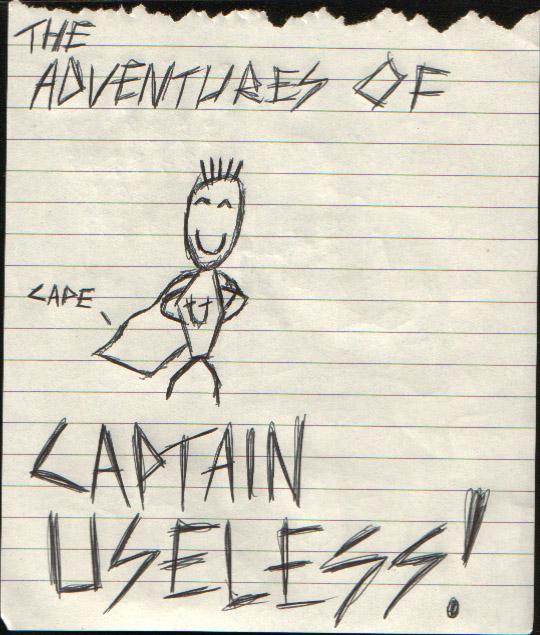 THE
ADVENTURES OF
CAPE
U
CAPTAIN
USELESS!